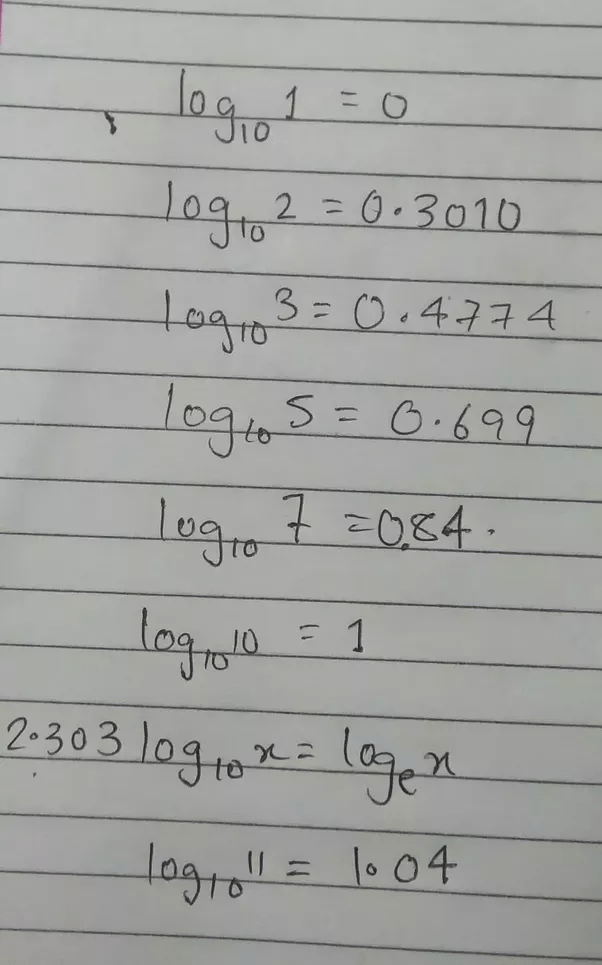 log₁₀ 1 = 0
log₁₀ 2 = 0.3010
log₁₀ 3 = 0.4774
log₁₀ 5 = 0.699
log₁₀ 7 = 0.84.
log₁₀ 10 = 1
2.303 log₁₀ x = logₑ x
log₁₀ 11 = 1.04